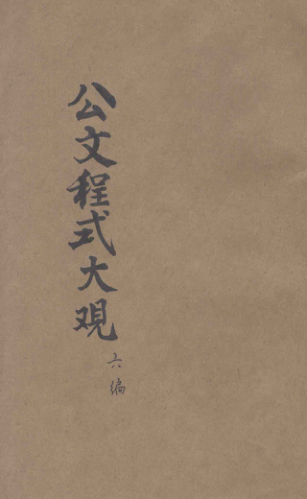 公文程式大观
六编